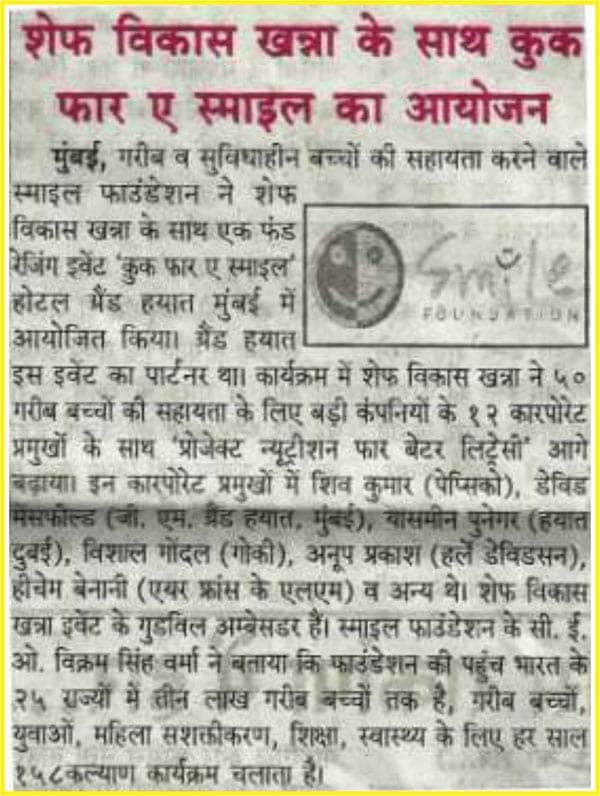 शेफ विकास खन्ना के साथ कुक
फार ए स्माइल का आयोजन
मुंबई, गरीब व सुविधाहीन बच्चों की सहायता करने वाले
स्माइल फाउंडेशन ने शेफ
विकास खन्ना के साथ एक फंड
रेजिंग इवेंट 'कुक फार ए स्माइल'
होटल ग्रैंड हयात मुंबई में
आयोजित किया। ग्रैंड हयात
Smile
FOUNDATION
इस इवेंट का पार्टनर था। कार्यक्रम में शेफ विकास खन्ना ने ५०
गरीब बच्चों की सहायता के लिए बड़ी कंपनियों के १२ कारपोरेट
प्रमुखों के साथ 'प्रोजेक्ट न्यूट्रीशन फार बेटर लिट्रेसी' आगे
बढ़ाया। इन कारपोरेट प्रमुखों में शिव कुमार (पेप्सिको), डेविड
मेसफोल्ड (जी. एम. ग्रैंड हयात, मुंबई), यासमीन पुनेगर (हयात
दुबई), विशाल गोंदल (गोकी), अनूप प्रकाश (हर्ले डेविडसन),
हीचेम बेनानी (एयर फ्रांस के एलएम) व अन्य थे। शेफ विकास
खन्ना इवेंट के गुडविल अम्बेसडर हैं। स्माइल फाउंडेशन के सी. ई.
ओ. विक्रम सिंह वर्मा ने बताया कि फाउंडेशन की पहुंच भारत के
२५ राज्यों में तीन लाख गरीब बच्चों तक है, गरीब बच्चों,
युवाओं, महिला सशक्तीकरण, शिक्षा, स्वास्थ्य के लिए हर साल
१५८कल्याण कार्यक्रम चलाता है।